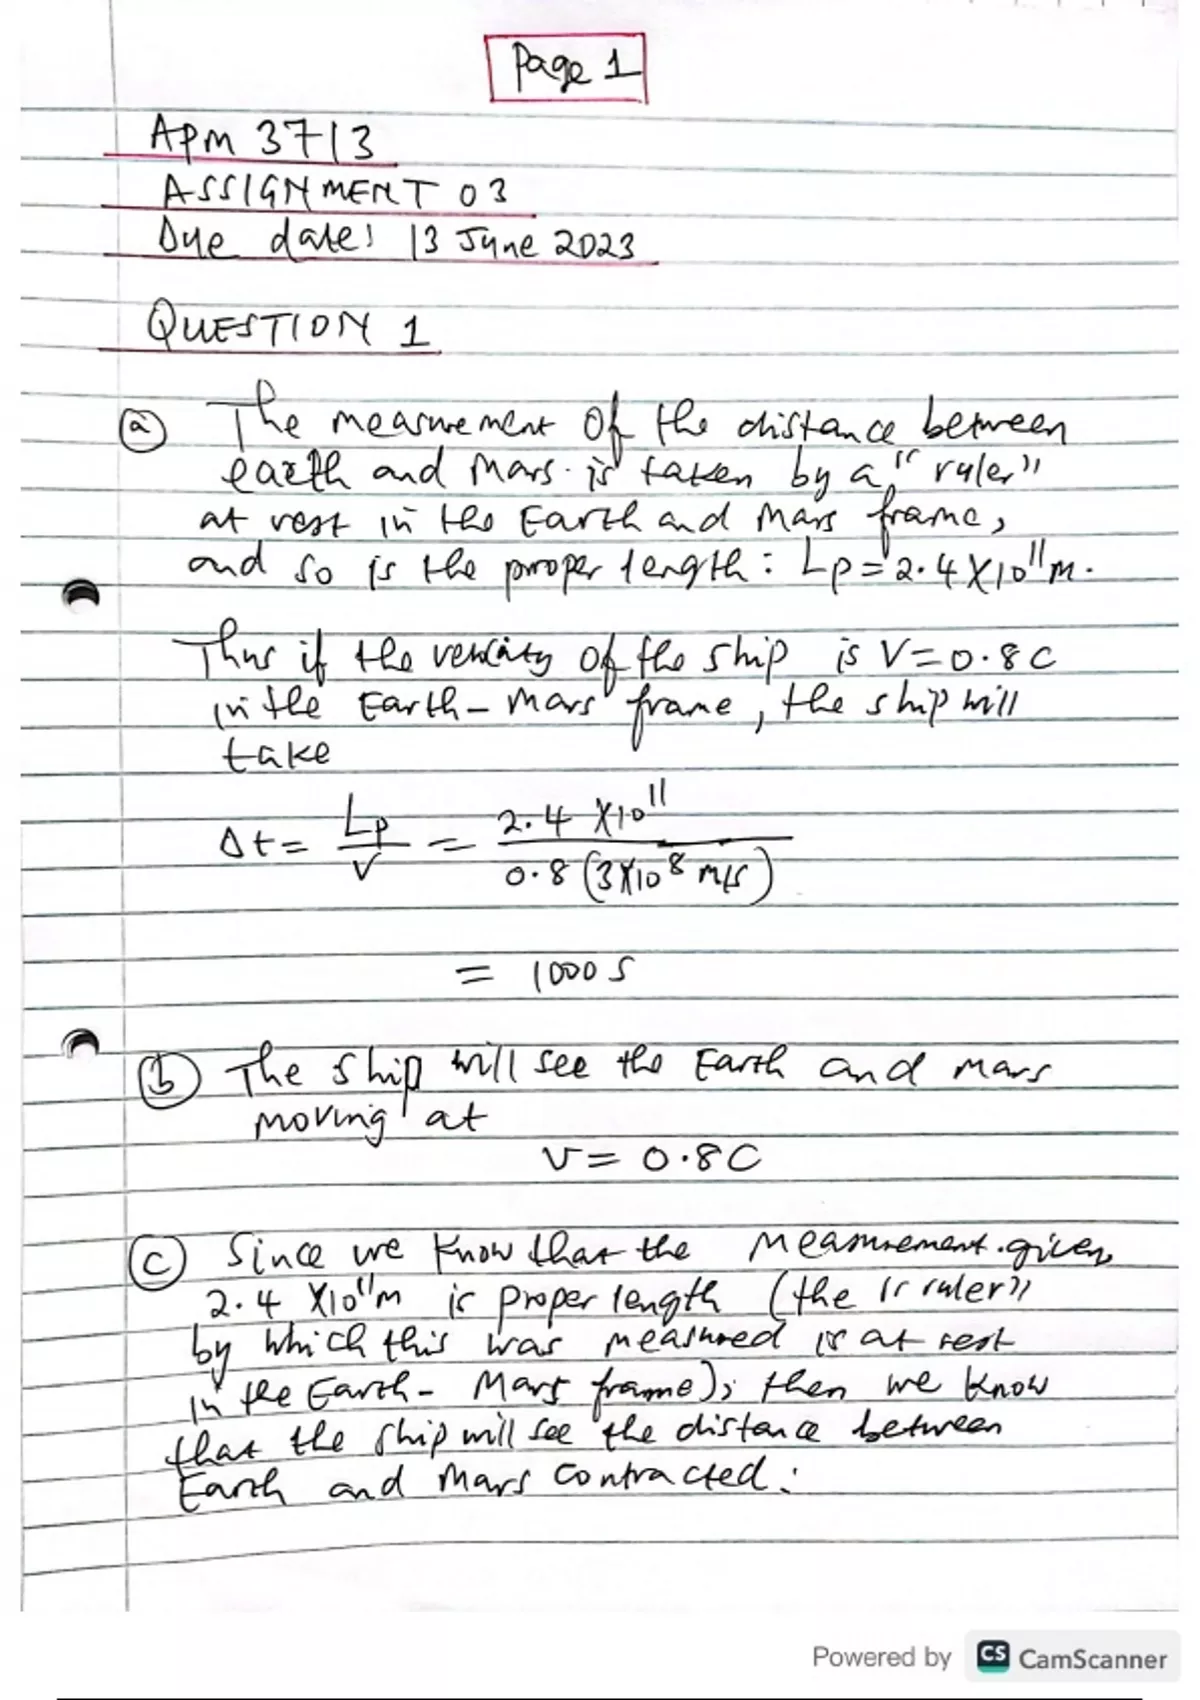 Page 1
APM 3713
ASSIGNMENT 03
Due date: 13 June 2023
QUESTION 1
(a) The measurement of the distance between
earth and Mars is taken by a "ruler"
at rest in the Earth and Mars frame,
and so is the proper length: Lp = 2.4 X10¹¹m.
Thus if the velocity of the ship is V=0.8C
in the Earth-Mars frame, the ship will
take
Δt = Lp/V = 2.4 X10¹¹/0.8 (3X10⁸ m/s)
= 1000 S
(b) The ship will see the Earth and Mars
moving at
V = 0.8C
(c) Since we know that the measurement given
2.4 X10¹¹m is proper length (the "ruler"
by which this was measured is at rest
in the Earth-Mars frame); then we know
that the ship will see the distance between
Earth and Mars contracted:
Powered by CS CamScanner